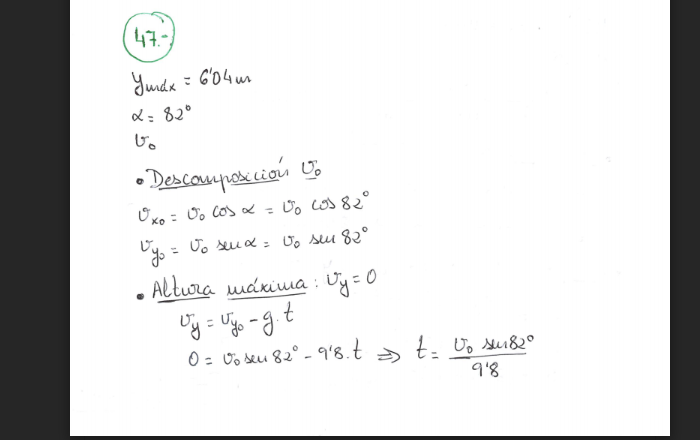 47.-
y máx = 6'04 m
α = 82°
v₀
• Descomposición v₀
vₓ₀ = v₀ cos α = v₀ cos 82°
v_y₀ = v₀ sen α = v₀ sen 82°
• Altura máxima: v_y = 0
v_y = v_y₀ - g.t
0 = v₀ sen 82° - 9'8.t ⇒ t = v₀ sen 82° / 9'8